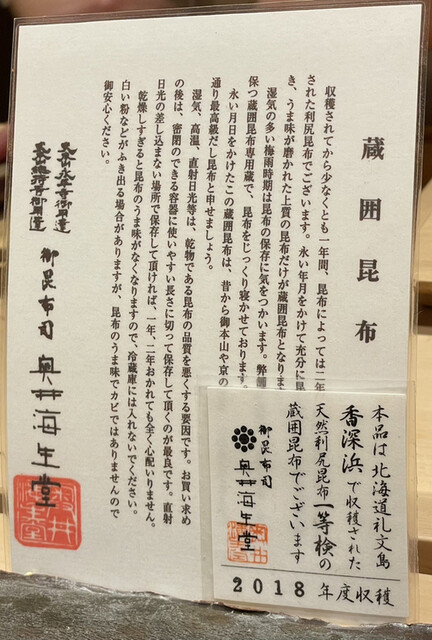 蔵囲昆布
収穫されてから少なくとも一年間、昆布によっては二年
された利尻昆布でございます。永い年月をかけて充分に
き、うま味が磨かれた上質の昆布だけが蔵囲昆布となりま
湿気の多い梅雨時期は昆布の保存に気をつかいます。弊
保つ蔵囲昆布専用蔵で、昆布をじっくり寝かせております。
永い月日をかけたこの蔵囲昆布は、昔から御本山や京の
通り最高級だし昆布と申せましょう。
湿気、高温、直射日光等は、乾物である昆布の品質を悪くする要因です。お買い求め
の後は、密閉のできる容器に使いやすい長さに切って保存して頂くのが最良です。直射
日光の差し込まない場所で保存して頂ければ、一年、二年おかれても全く心配いりません。
乾燥しすぎると昆布のうま味がなくなりますので、冷蔵庫には入れないでください。
白い粉などがふき出る場合がありますが、昆布のうま味でカビではありませんので
御安心ください。
大本山永平寺御用達
大本山總持寺御用達
御昆布司 奥井海生堂
奥井海生堂
本品は北海道礼文島
香深浜で収穫された
天然利尻昆布一等検の
蔵囲昆布でございます
御昆布司 奥井海生堂
2018年度収穫